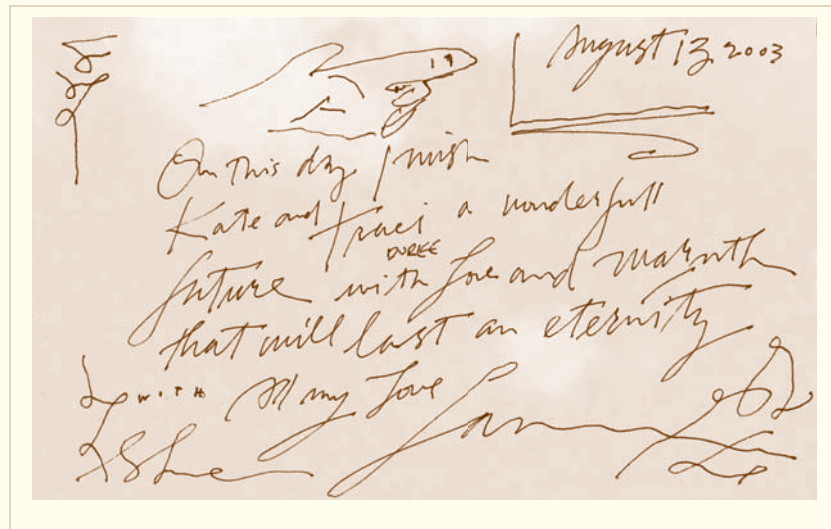 August 13, 2003
On this day I wish
Kate and Traci a wonderfull
DUREE
future with love and warmth
that will last an eternity
WITH All my Love